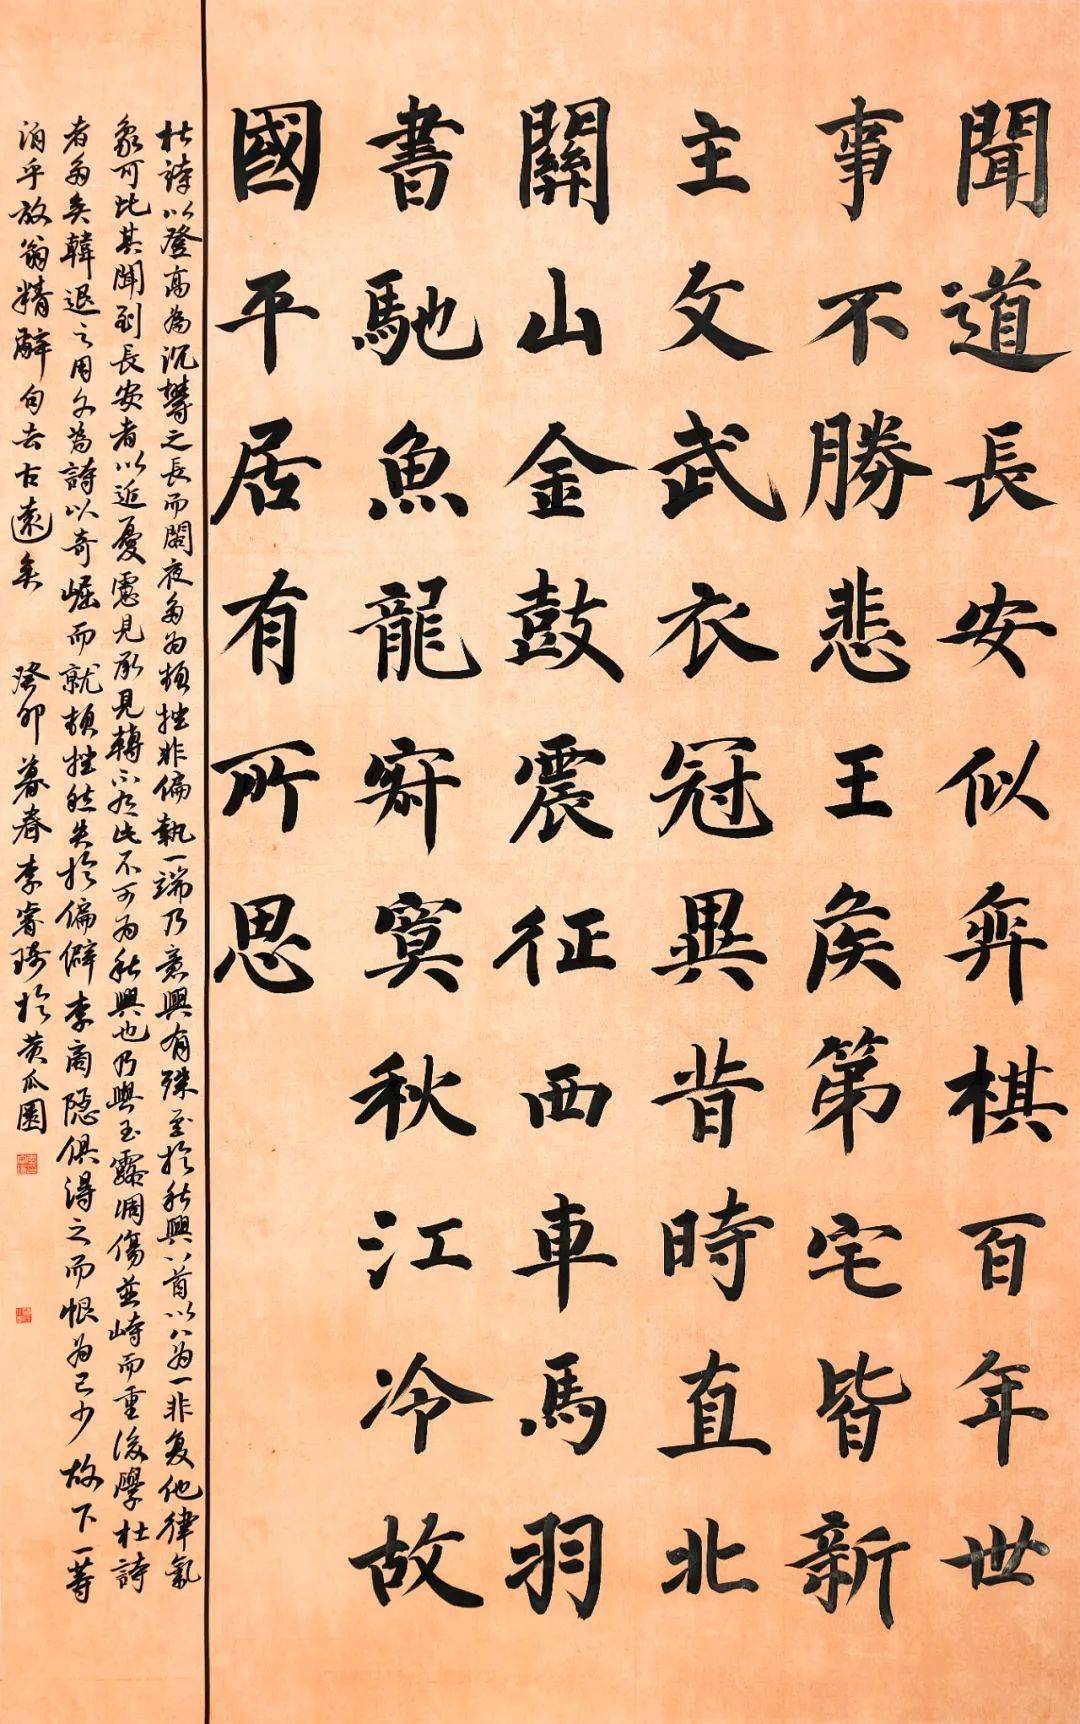 聞道長安似弈棋百年世
事不勝悲王侯第宅皆新
主文武衣冠異昔時直北
關山金鼓震征西車馬羽
書馳魚龍寂寞秋江冷故
國平居有所思
杜詩以登高為沉鬱之長而閣夜多为頓挫非偏執一端乃意興有殊至於秋興八首以八為一非复他律氣
象可比其聞到長安者以近憂遠見承見轉亦止此不可为秋興也乃與玉露凋傷並峙而重後學杜詩
者多矣韓退之用文為詩以奇崛而就頓挫然失於偏僻李商隱俱得之而恨为已少故下一等
洎乎放翁精辭句去古遠矣 癸卯暮春李睿琦於黃瓜園